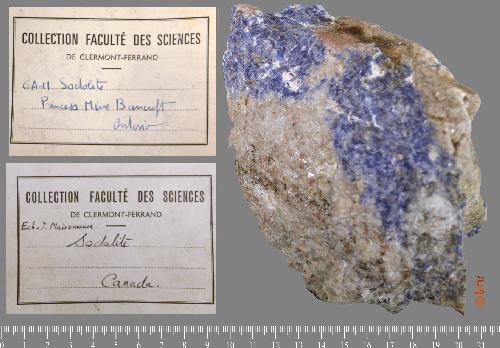 COLLECTION FACULTÉ DES SCIENCES
DE CLERMONT-FERRAND
CA-11 Sodolite
Princess Mine Bancroft
Ontario
COLLECTION FACULTÉ DES SCIENCES
DE CLERMONT-FERRAND
Ech. J. Maisonneuve
Sodalite
Canada.
0 1 2 3 4 5 6 7 8 9 10 11 12 13 14 15 16 17 18 19 20 21